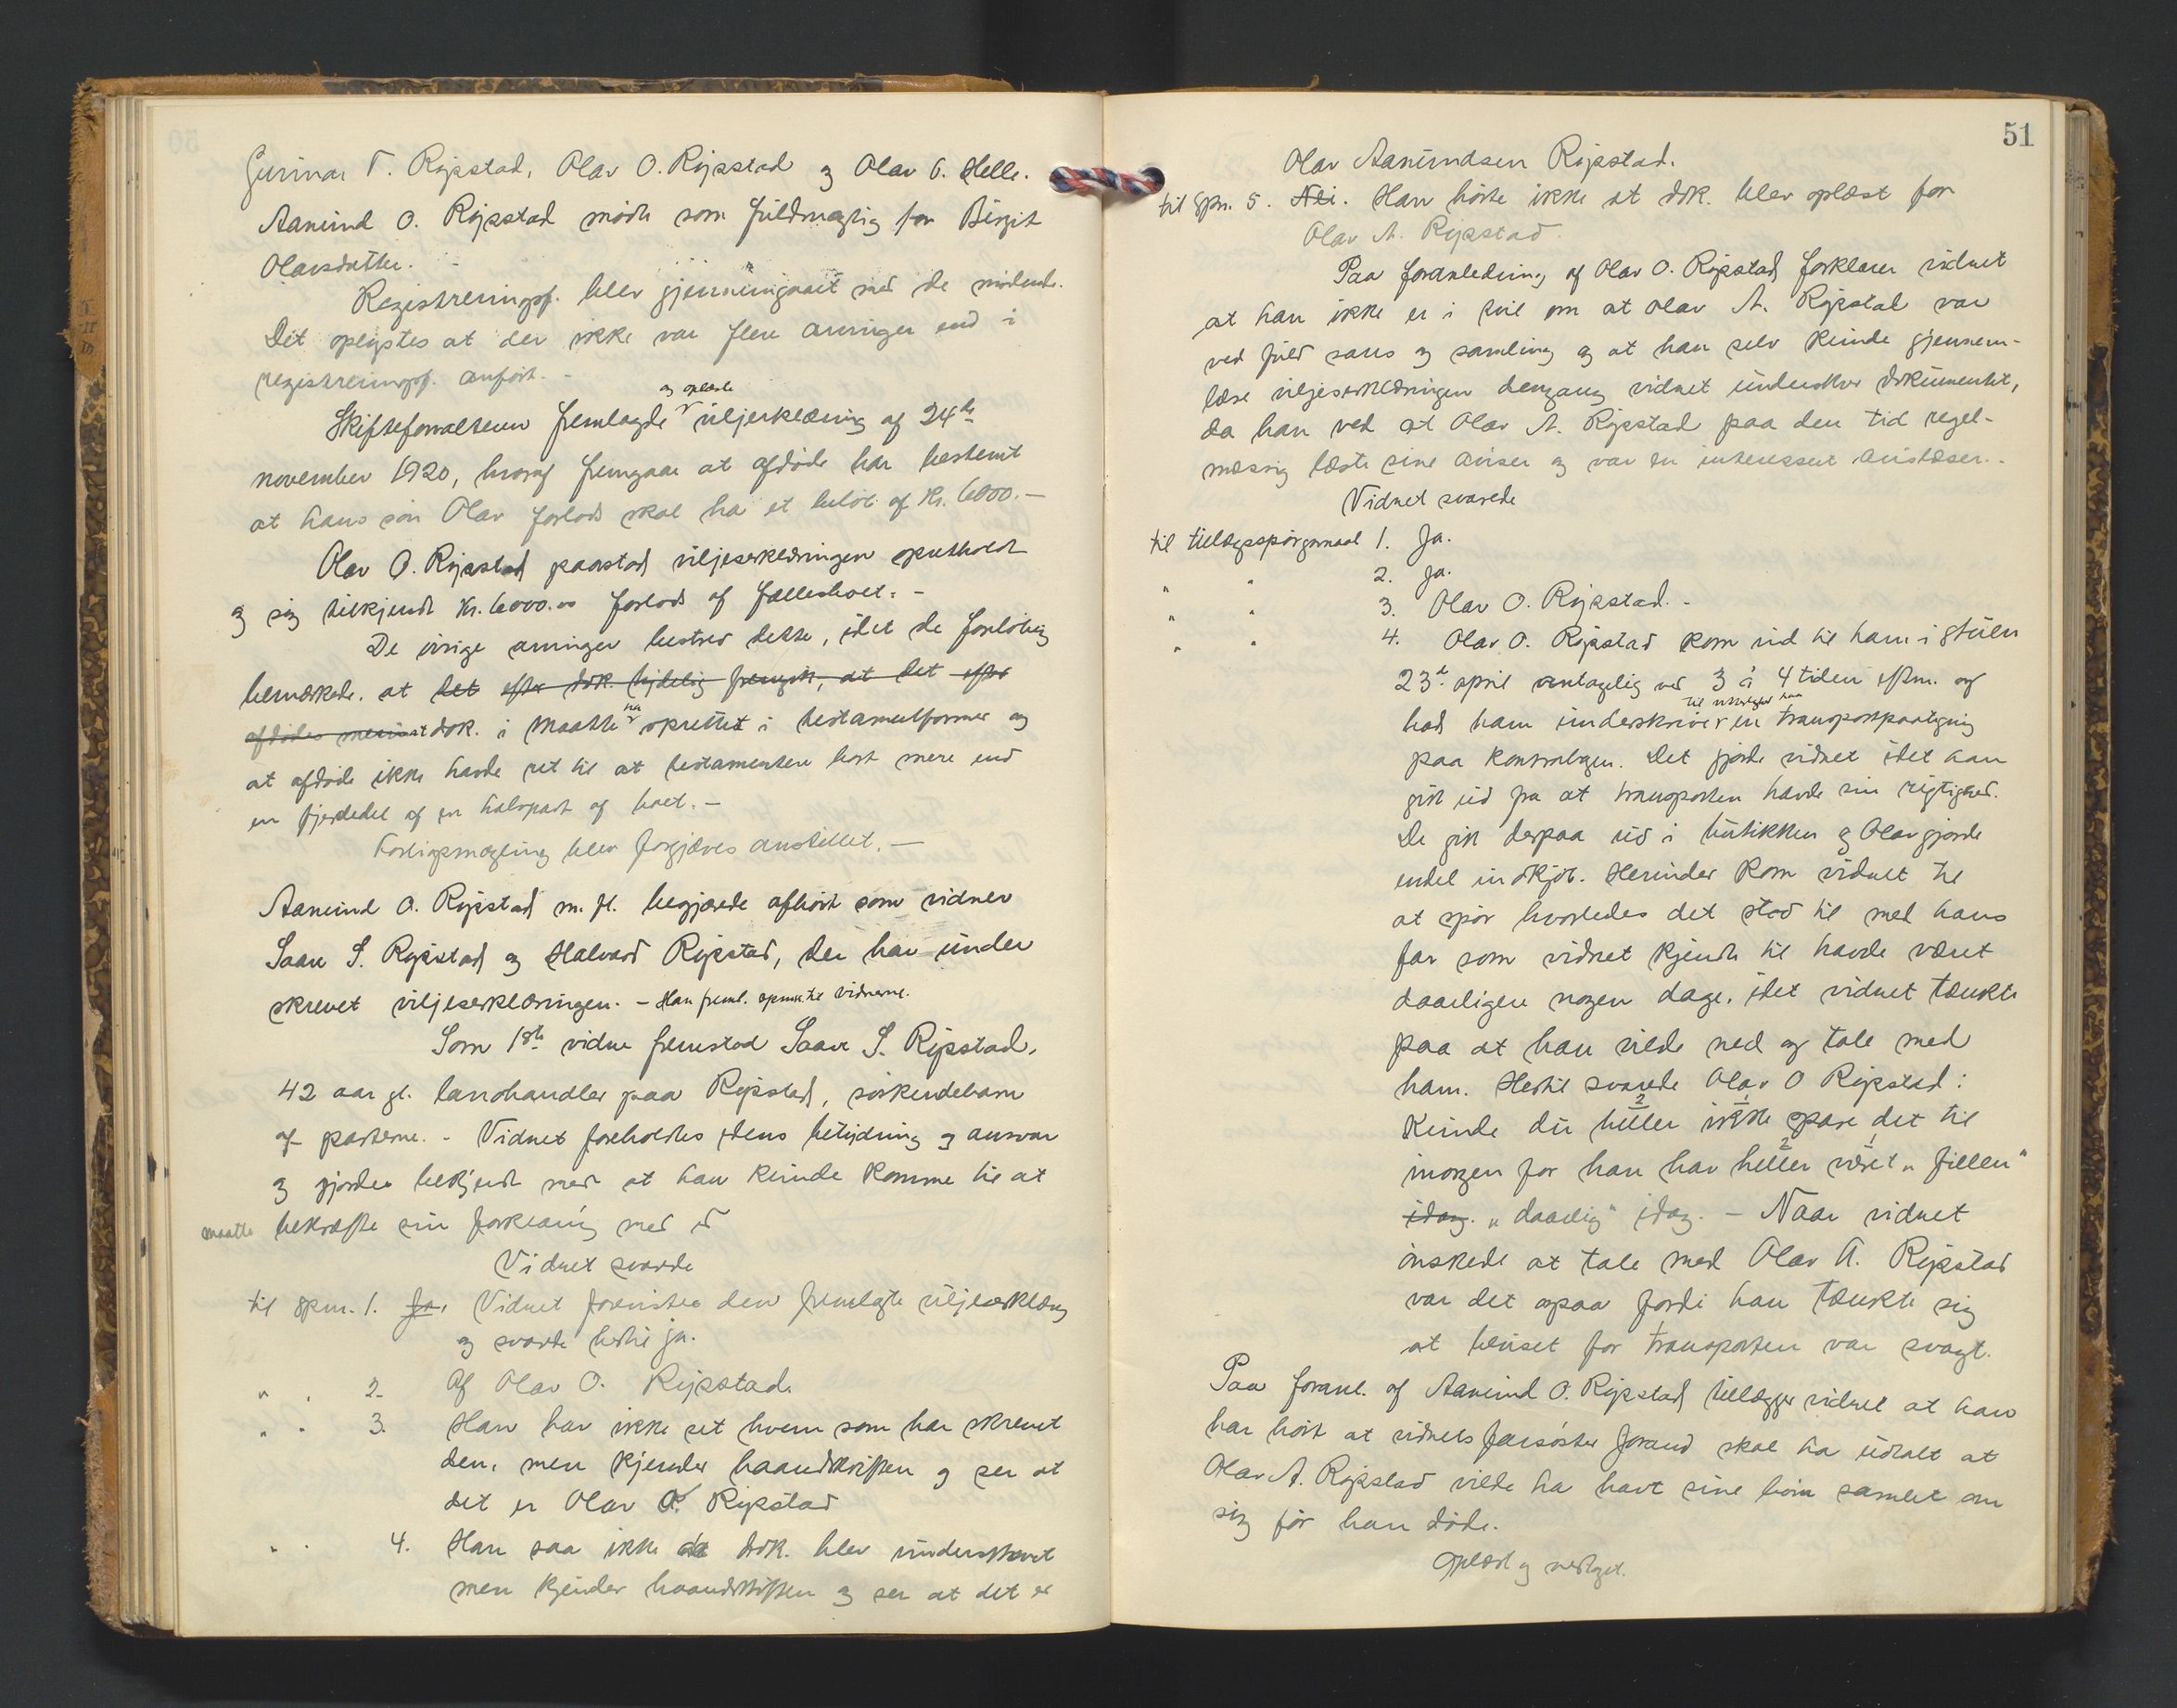 Gunnar T. Rysstad, Olav O. Rysstad og Olav G. Helle.
Aanund O. Rysstad mødte som fuldmægtig for Birgit
Olavsdatter. -
Registreringsf. blev gjennemgaaet med de mødende.
Det oplystes at der ikke var flere arvinger end i
registreringsf. anført. -
og oplæste
Skifteforvalteren fremlagde viljeserklæring af 24de
november 1920, hvoraf fremgaar at afdøde har bestemt
at hans søn Olav forlods skal ha et beløb af kr. 6000.-
Olav O. Rysstad paastod viljeserklæringen opretholdt
og sig tilkjendt kr. 6000.00 forlods af fællesboet. -
De øvrige arvinger bestred dette, idet de foreløbig
bemerkede, at det efter dok. tydelig fremgik, at det efter
afdødes mening at dok. i maatte ha oprettet i testamentsformer og
at afdøde ikke havde ret til at testamentere bort mere end
en fjerdedel af en halvpart af boet. -
Forligsmægling blev forgjæves anstillet. -
Aanund O. Rysstad m. fl. begjærede afhørt som vidner
Saave S. Rysstad og Halvard Rysstad, der har under
skrevet viljeserklæringen. - Han freml. spmaal til vidnerne.
Som 1ste vidne fremstod Saave S. Rysstad,
42 aar gl. landhandler paa Rysstad, søskendebarn
af parterne. - Vidnet foreholdtes edens betydning og ansvar
og gjordes bekjendt med at han kunde komme til at
maatte bekræfte sin forklaring med ed
Vidnet svarede
til spm. 1. Ja. Vidnet forevistes den fremlagte viljeserklæring
og svarte hertil ja.
" " 2. Af Olav O. Rysstad.
" " 3. Han har ikke set hvem som har skrevet
den, men kjender haandskriften og ser at
det er Olav O. Rysstad
" " 4. Han saa ikke at dok. blev underskrevet
men kjender haandskriften og ser at det er
51
Olav Aanundsen Rysstad.
til spm. 5. Nei. Han hørte ikke at dok. blev oplæst for
Olav A. Rysstad.
Paa foranledning af Olav O. Rysstad forklarer vidnet
at han ikke er i tvil om at Olav A. Rysstad var
ved fuld sans og samling og at han selv kunde gjennem-
læse viljeserklæringen dengang vidnet underskrev dokumentet,
da han ved at Olav A. Rysstad paa den tid regel-
mæssig læste sine aviser og var en interessert avislæser. -
Vidnet svarede
til tillægsspørgsmaal 1. Ja.
" " 2. Ja.
" " 3. Olav O. Rysstad. -
" " 4. Olav O. Rysstad kom ind til ham i stuen
23de april antagelig ved 3 à 4 tiden eftm. og
bad ham underskrive en transportpaategning
paa kontrabogen. Det gjorde vidnet idet han
gik ud fra at transporten havde sin rigtighed.
De gik derpaa ud i butikken og Olav gjorde
endel indkjøb. Herunder kom vidnet til
at spør hvorledes det stod til med hans
far som vidnet kjendte til havde været
daarligere nogen dage, idet vidnet tænkte
paa at han vilde ned og tale med
ham. Hertil svarede Olav O Rysstad:
2 1
Kunde du heller ikke spare det til
2 1
imorgen for han har heller været "fillen"
idag. "daarlig" idag. - Naar vidnet
ønskede at tale med Olav A. Rysstad
var det ogsaa fordi han tænkte sig
at beviset for transporten var svagt.
Paa foranl. af Aanund O. Rysstad tillægger vidnet at han
har hørt at vidnets farsøster Jorand skal ha udtalt at
Olav A. Rysstad vilde ha havt sine børn samlet om
sig før han døde.
Oplæst og vedtaget.